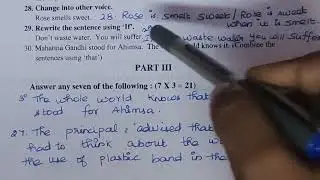 28. Change into other voice.
Rose smells sweet. 28. Rose is smelt sweet / Rose is sweet
when it is smelt.
29. Rewrite the sentence using 'If'.
Don't waste water. You will suffer. waste water you will suffer
30. Mahatma Gandhi stood for Ahimsa. The knows it. (Combine the
sentences using 'that')
PART III
Answer any seven of the following: (7 X 3 = 21)
30 The whole world knows that
stood for Ahimsa.
27. The principal advised that
had to think about the
the use of plastic band in the